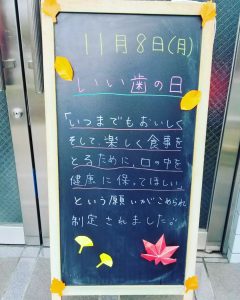 11月8日(月)
いい歯の日
「いつまでもおいしく
そして、楽しく食事を
とるために、口の中を
健康に保ってほしい」
という願いがこめられ
制定されました。